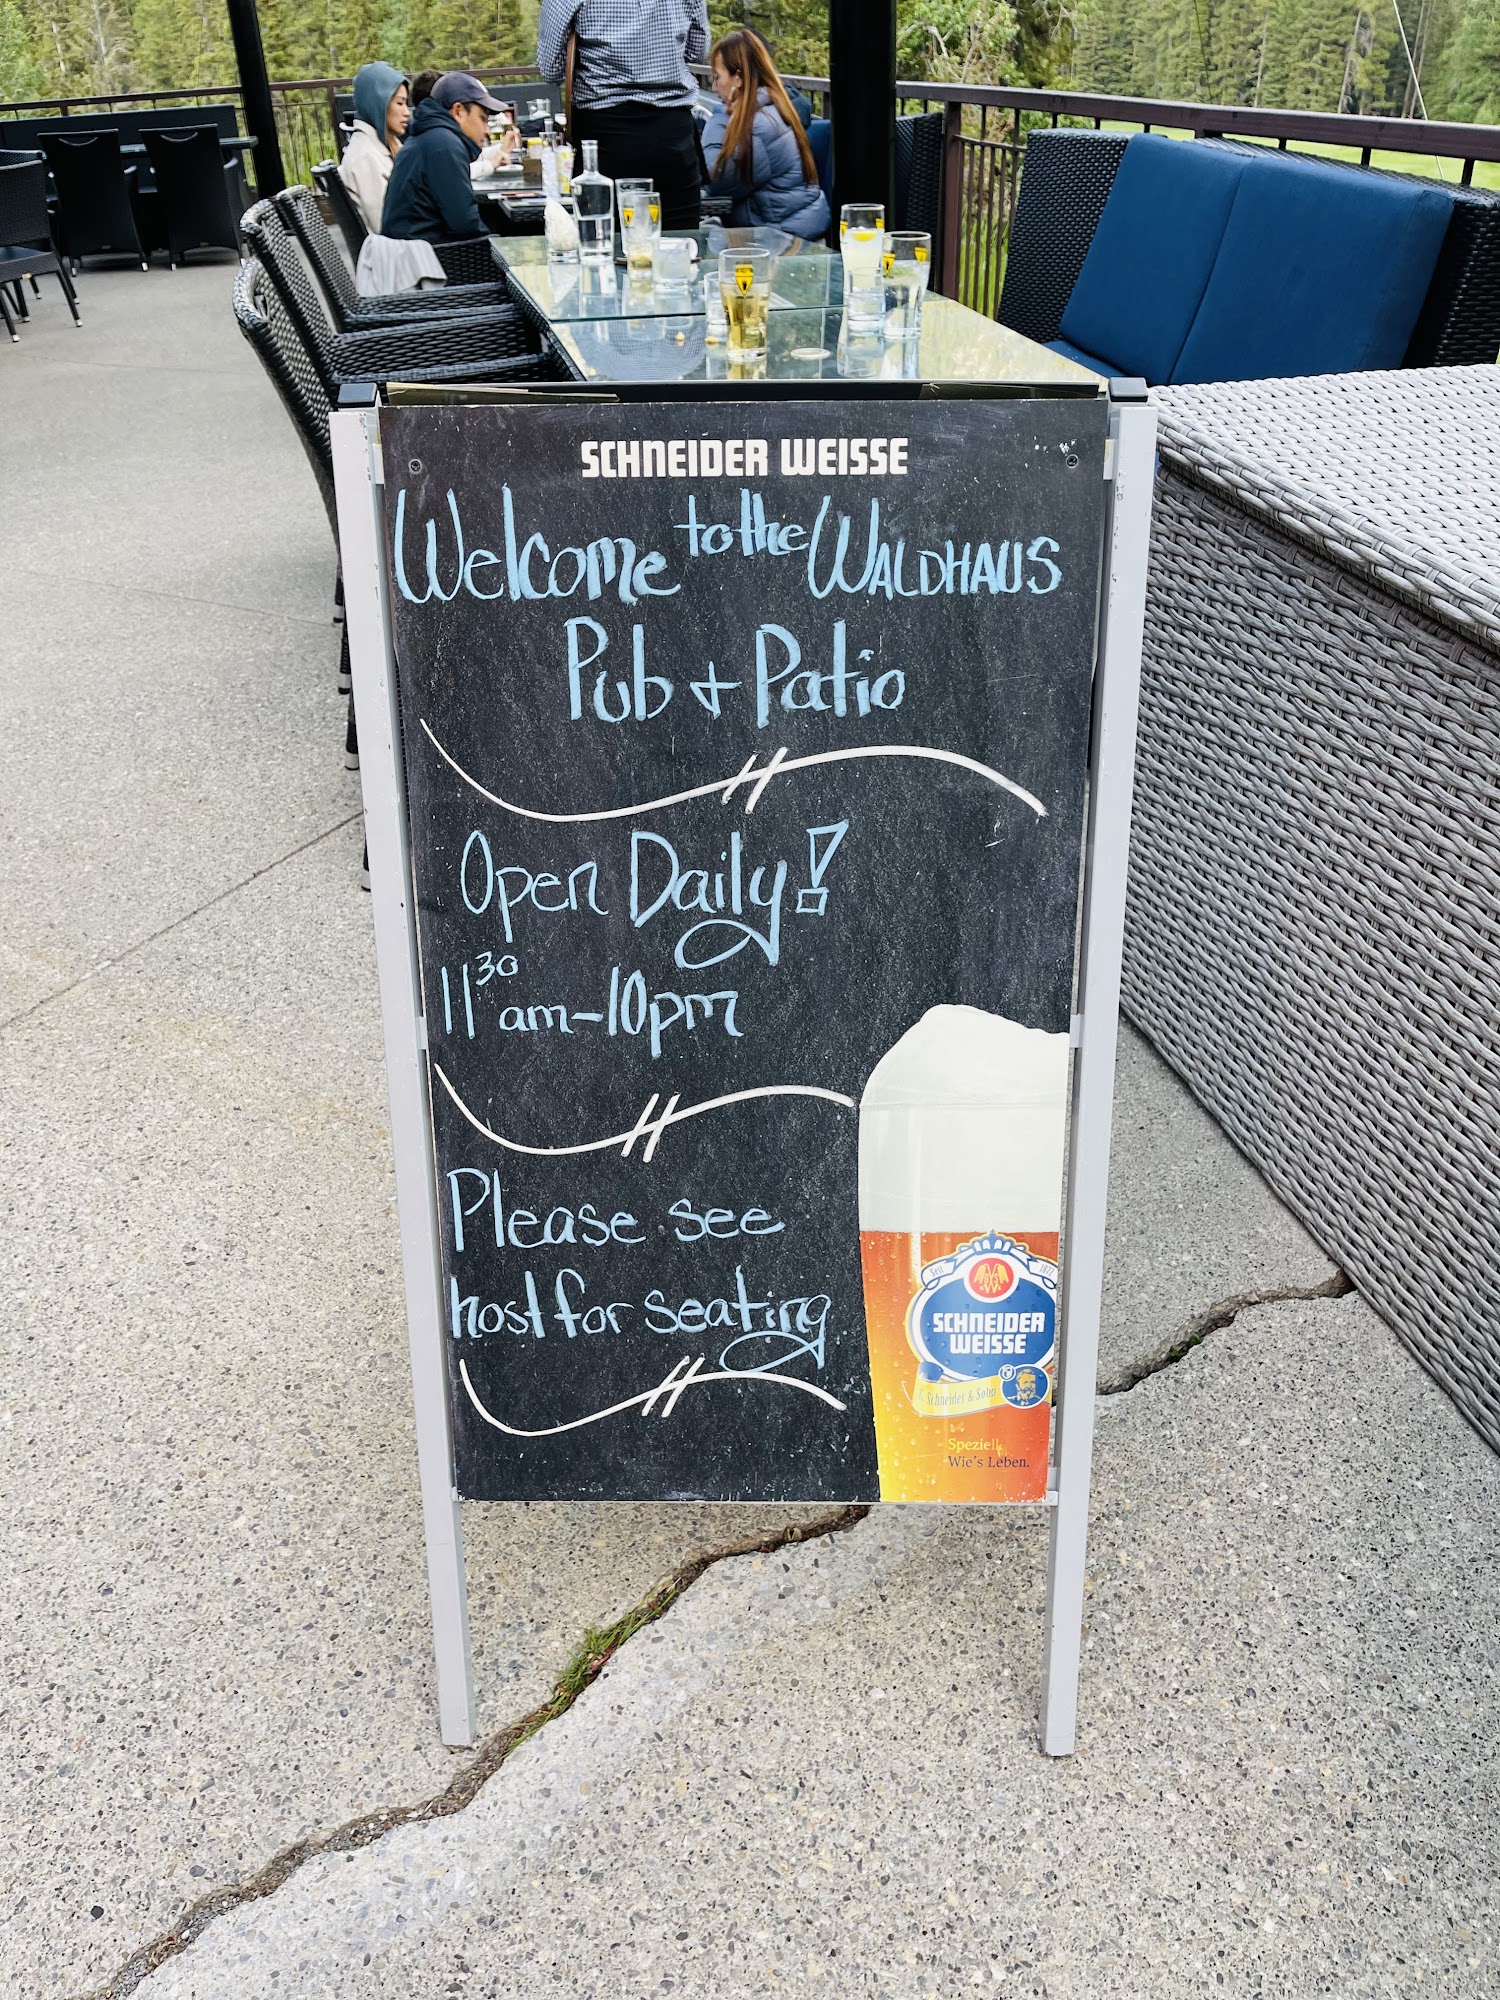 SCHNEIDER WEISSE
Welcome to the WALDHAUS
Pub + Patio
Open Daily!
11³⁰ am-10pm
Please see
host for seating
Seit 1872
SCHNEIDER
WEISSE
G. Schneider & Sohn
Speziell.
Wie's Leben.